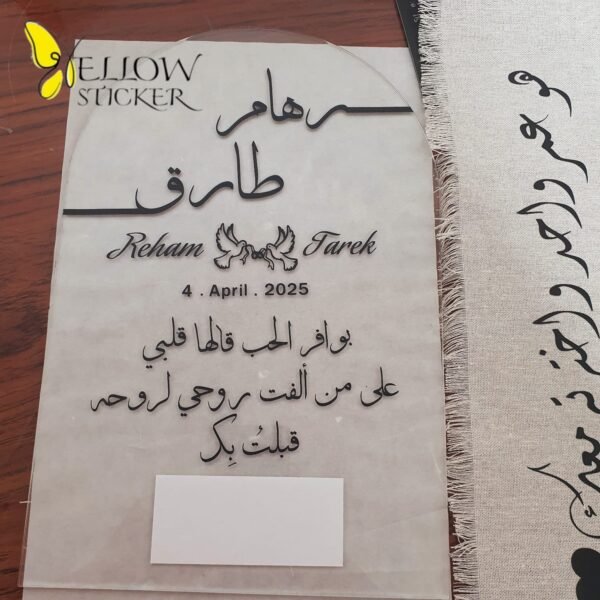 YELLOW
STICKER
رهام
طارق
Reham Tarek
4 . April . 2025
بوافر الحب قالها قلبي
على من ألفت روحي لروحه
قبلتُ بِكَ
هو عمر واحد واخترته معك